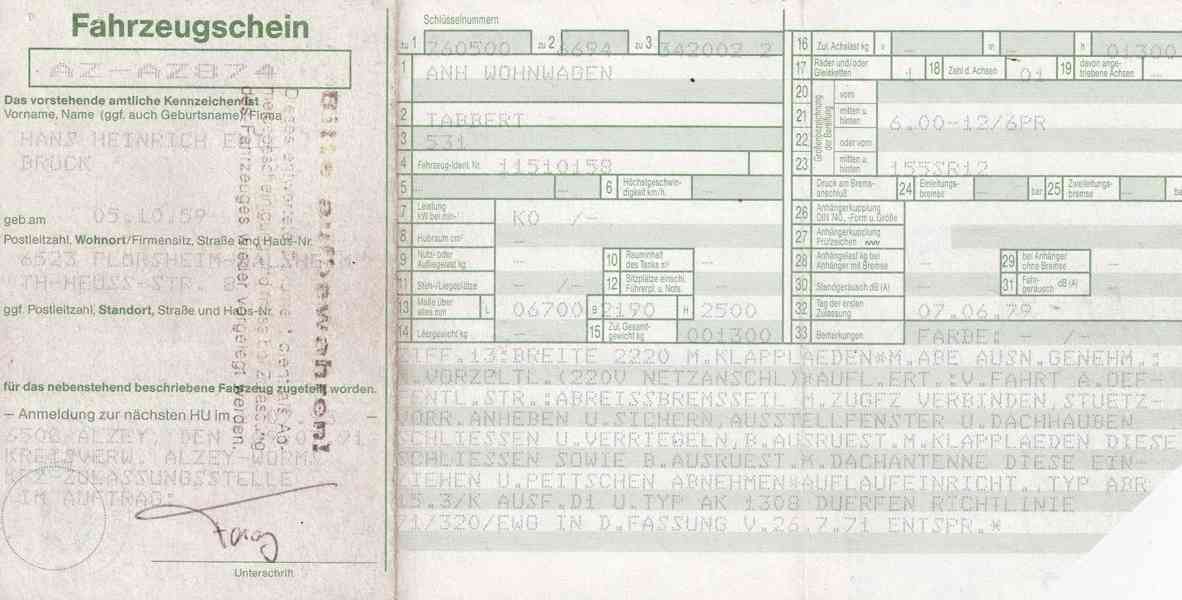 Fahrzeugschein
AZ-AZ874
Das vorstehende amtliche Kennzeichen ist
Vorname, Name (ggf. auch Geburtsname), Firma
HANS HEINRICH
BRUCK
geb.am 05.10.59
Postleitzahl, Wohnort/Firmensitz, Straße und Haus-Nr.
6523
TH-HEUSS-STR. 8
ggf. Postleitzahl, Standort, Straße und Haus-Nr.
für das nebenstehend beschriebene Fahrzeug zugeteilt worden.
– Anmeldung zur nächsten HU im –
6508 ALZEY, DEN
KREISVERW. ALZEY-WORM
KFZ-ZULASSUNGSSTELLE
IM AUFTRAG:
Unterschrift
Bitte aufbewahren!
des Fahrzeuges wieder vorgelegt werden
Schlüsselnummern
zu 1 760500 zu 2 6694 zu 3 342002 2
1 ANH WOHNWAGEN
2 TABBERT
3 531
4 Fahrzeug-Ident. Nr. 11510158
5 6 Höchstgeschwindigkeit km/h
7 Leistung kW bei min⁻¹ K0 /-
8 Hubraum cm³ -
9 Nutz- oder Aufliegelast kg - 10 Rauminhalt des Tanks m³ -
11 Steh-/Liegeplätze - /- 12 Sitzplätze einschl. Führerpl. u. Nots. -
13 Maße über alles mm L 06700 B 2190 H 2500
14 Leergewicht kg - 15 Zul. Gesamtgewicht kg 001300
16 Zul. Achslast kg v - m - h 01300
17 Räder und/oder Gleisketten 1 18 Zahl d. Achsen 01 19 davon angetriebene Achsen -
20 Größenbezeichnung der Bereifung vorn
21 mitten u. hinten 6.00-12/6PR
22 oder vorn
23 mitten u. hinten 155SR12
Druck am Bremsanschluß 24 Einleitungsbremse - bar 25 Zweileitungsbremse -
26 Anhängerkupplung DIN NO., -Form u. Größe
27 Anhängerkupplung Prüfzeichen
28 Anhängelast kg bei Anhänger mit Bremse - 29 bei Anhänger ohne Bremse -
30 Standgeräusch dB (A) - 31 Fahrgeräusch dB (A) -
32 Tag der ersten Zulassung 07.06.79
33 Bemerkungen FARBE: - /-
ZIFF.13:BREITE 2220 M.KLAPPLAEDEN*M.ABE AUSN.GENEHM.:
F.VORZPLTL.(220V NETZANSCHL)*AUFL.ERT.:V.FAHRT A.OEF-
FENTL.STR.:ABREISSBREMSSEIL M.ZUGFZ VERBINDEN,STUETZ-
VORR.ANHEBEN U.SICHERN,AUSSTELLFENSTER U.DACHHAUBEN
SCHLIESSEN U.VERRIEGELN,B.AUSRUEST.M.KLAPPLAEDEN DIESE
SCHLIESSEN SOWIE B.AUSRUEST.M.DACHANTENNE DIESE EIN-
ZIEHEN U.PEITSCHEN ABNEHMEN*AUFLAUFEINRICHT.,TYP ABR
15.3/K AUSF.D1 U.TYP AK 1308 DUERFEN RICHTLINIE
71/320/EWG IN D.FASSUNG V.26.7.71 ENTSPR.*